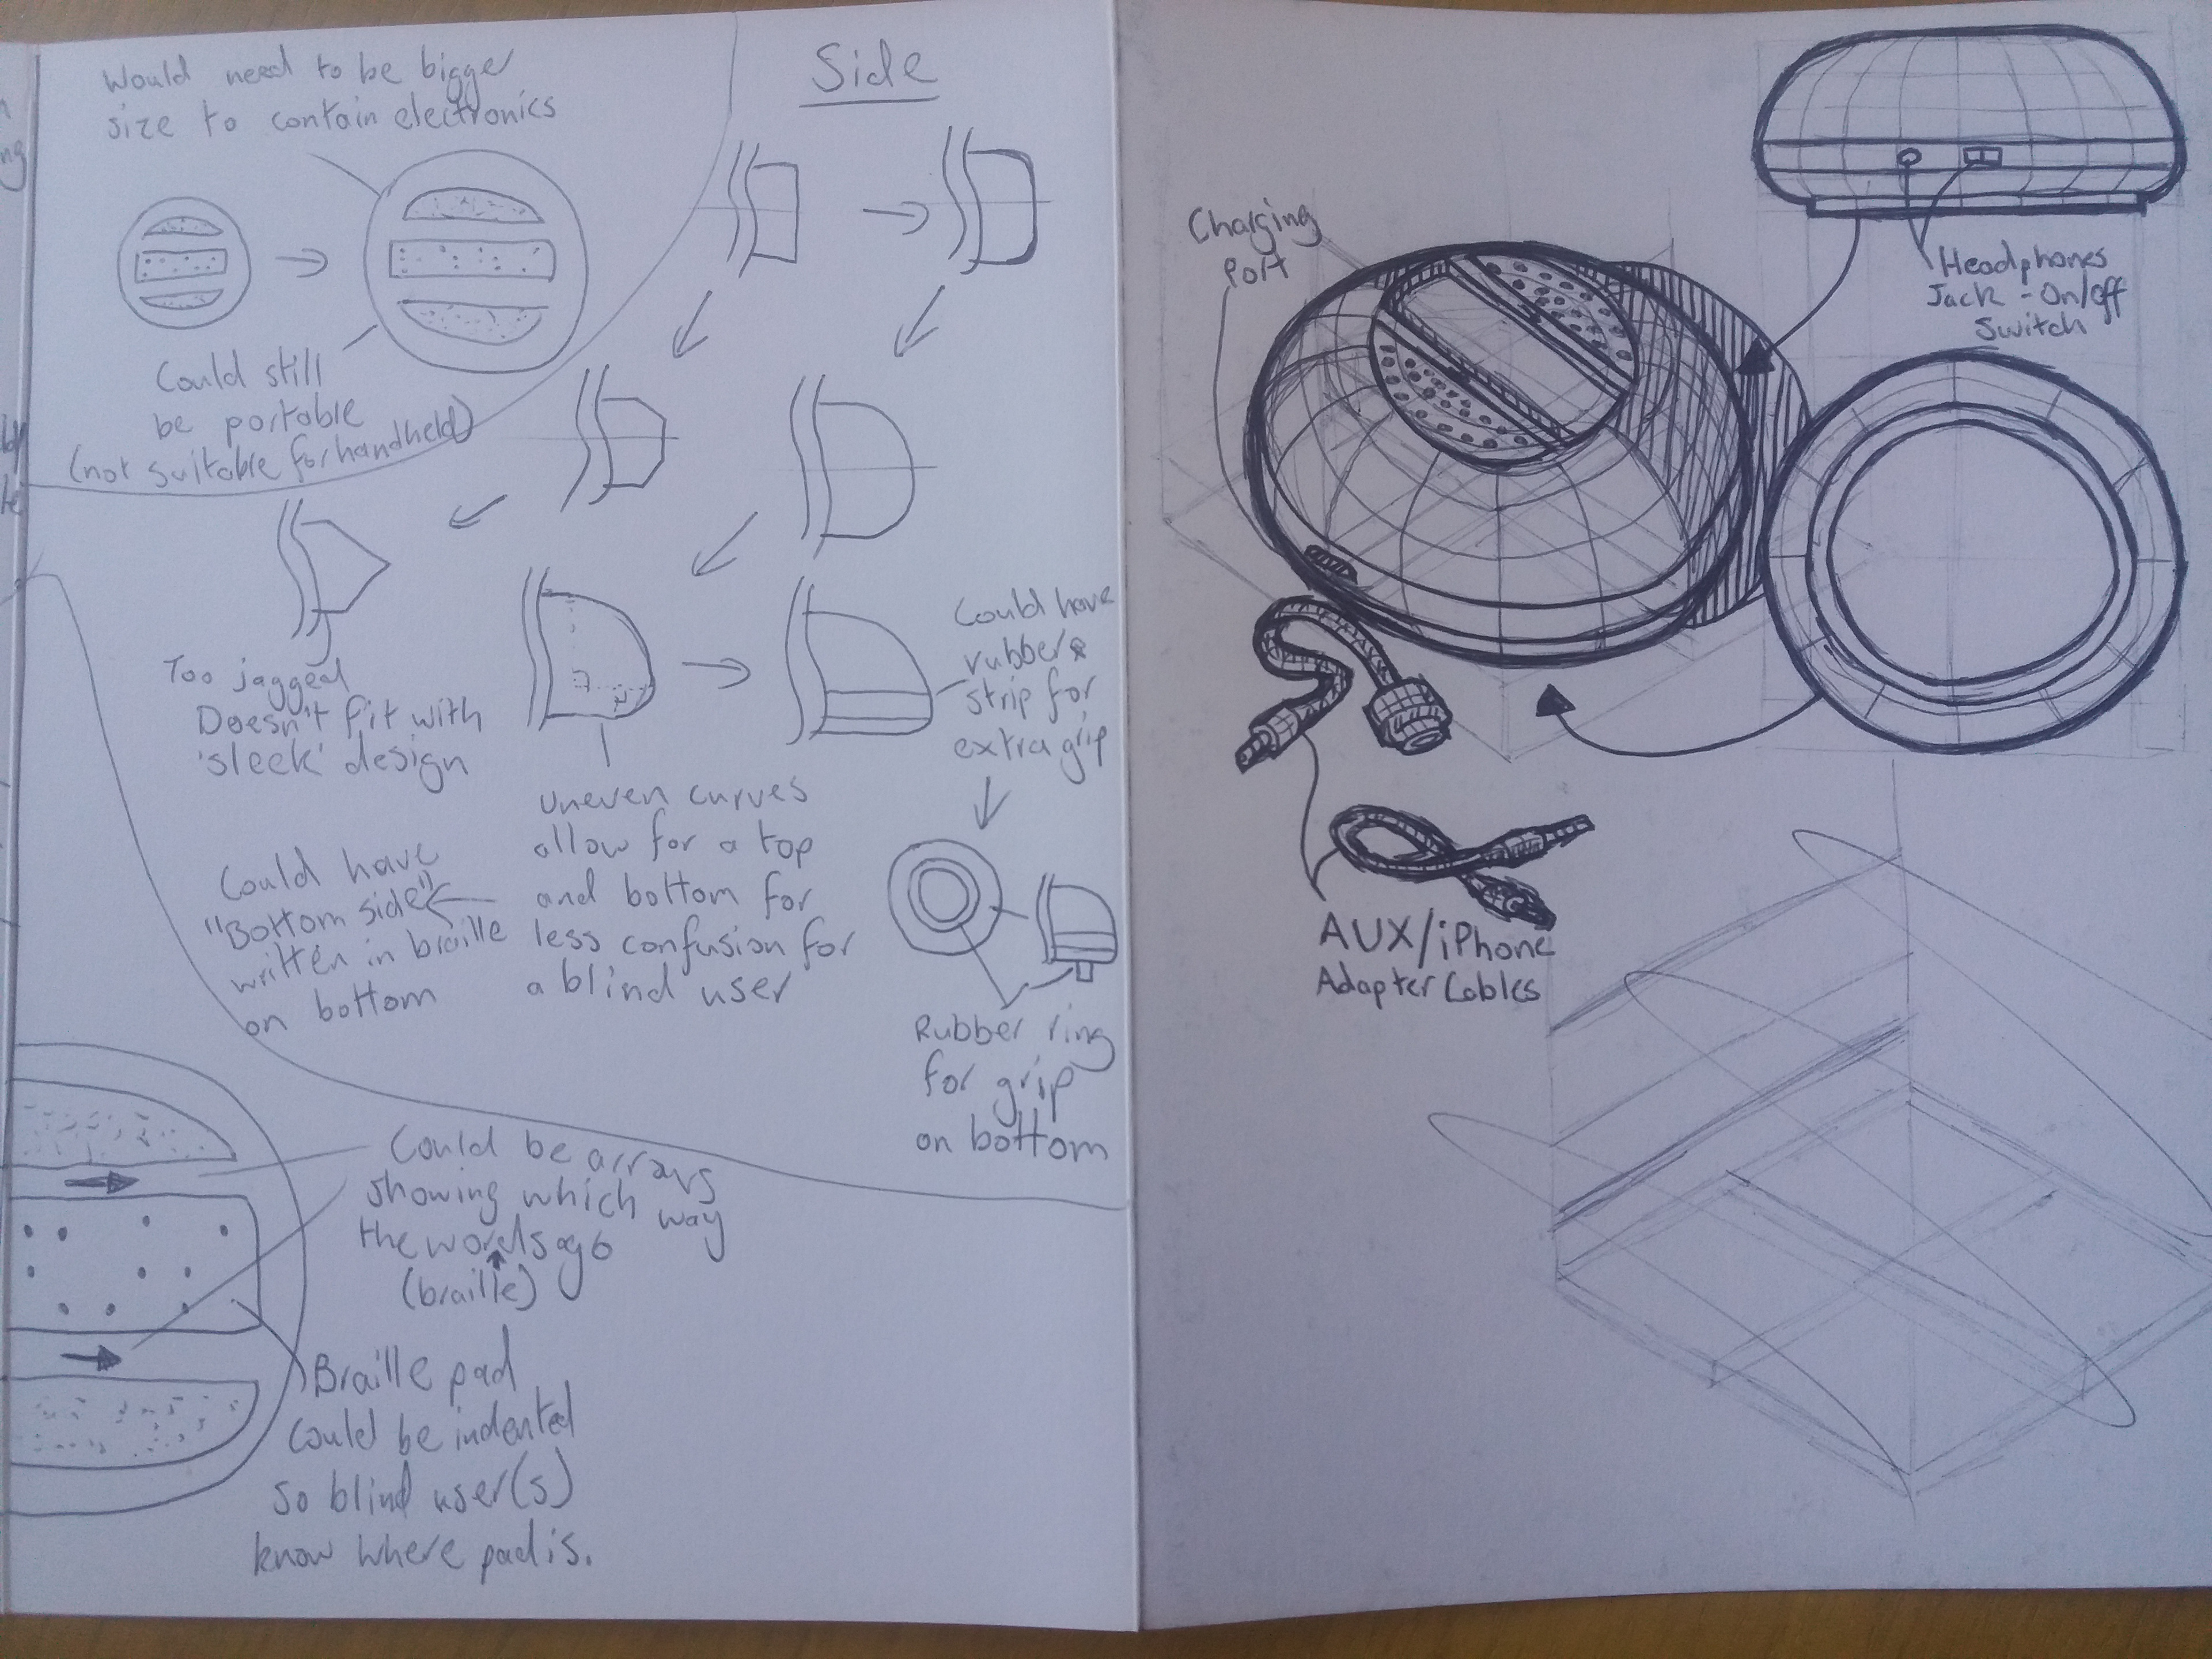 Would need to be bigger
size to contain electronics
Could still
be portable
(not suitable for handheld)
Side
Too jagged
Doesn't fit with
'sleek' design
Could have
"Bottom side"
written in braille
on bottom
Uneven curves
allow for a top
and bottom for
less confusion for
a blind user
Could have
rubber
strip for
extra grip
Rubber ring
for grip
on bottom
Could be arrays
showing which
way
the words go
(braille)
Braille pad
could be indented
so blind user(s)
know where pad is.
Charging
Port
Headphones
Jack - On/Off
Switch
AUX/iPhone
Adapter Cables